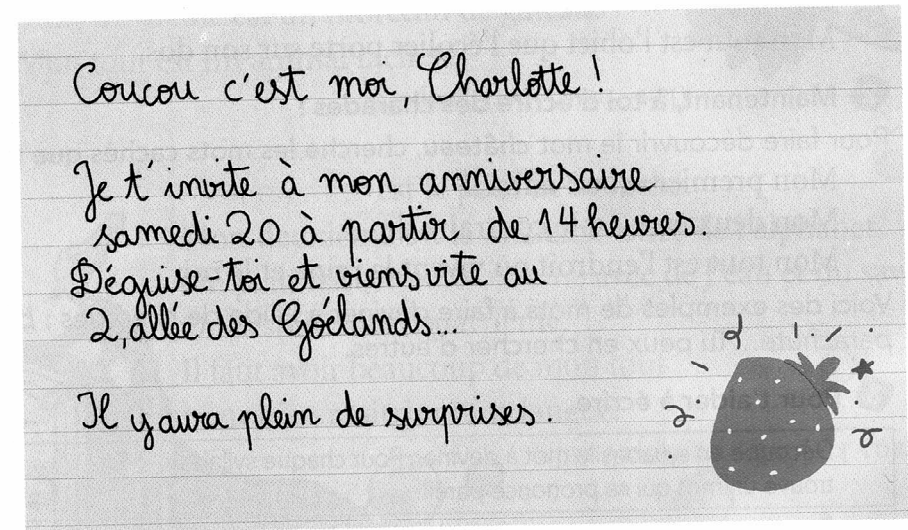 Coucou c'est moi, Charlotte !
Je t'invite à mon anniversaire
samedi 20 à partir de 14 heures.
Déguise-toi et viens vite au
2, allée des Goélands...
Il y aura plein de surprises.